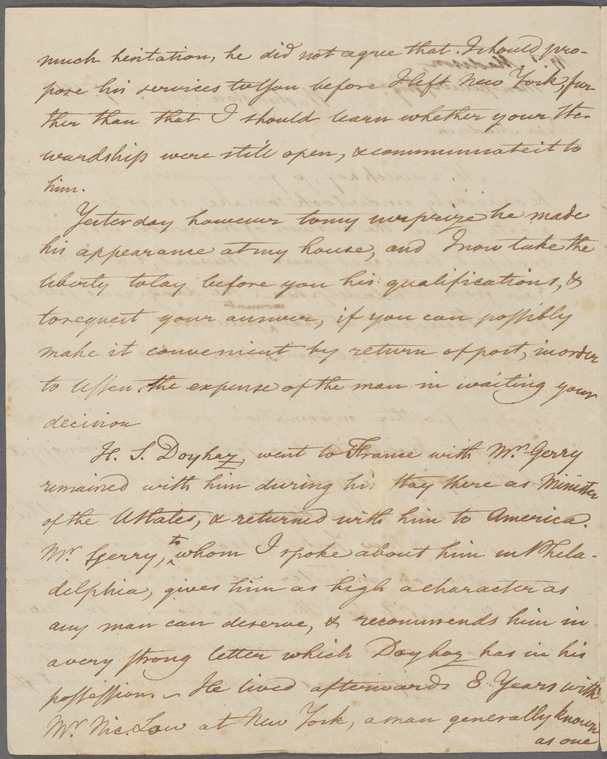 much hesitation, he did not agree that I should pro-
pose his services to You before I left New York, fur
ther than that I should learn whether your Ste-
wardship were still open, & communicate it to
him.
Yesterday however to my surprize he made
his appearance at my house, and I now take the
liberty to lay before you his qualifications, &
to request your answer, if you can possibly
make it convenient by return of post, in order
to lessen the expense of the man in waiting your
decision
H. S. Doyhaz, went to France with Mr. Gerry
remained with him during his stay there as Minister
of the UStates, & returned with him to America.
Mr Gerry, to whom I spoke about him in Phila-
delphia, gives him as high a character as
any man can deserve, & recommends him in
a very strong letter which Doyhaz has in his
possession. He lived afterwards 8 Years with
Mr. Nic. Low at New York, a man generally known
as one